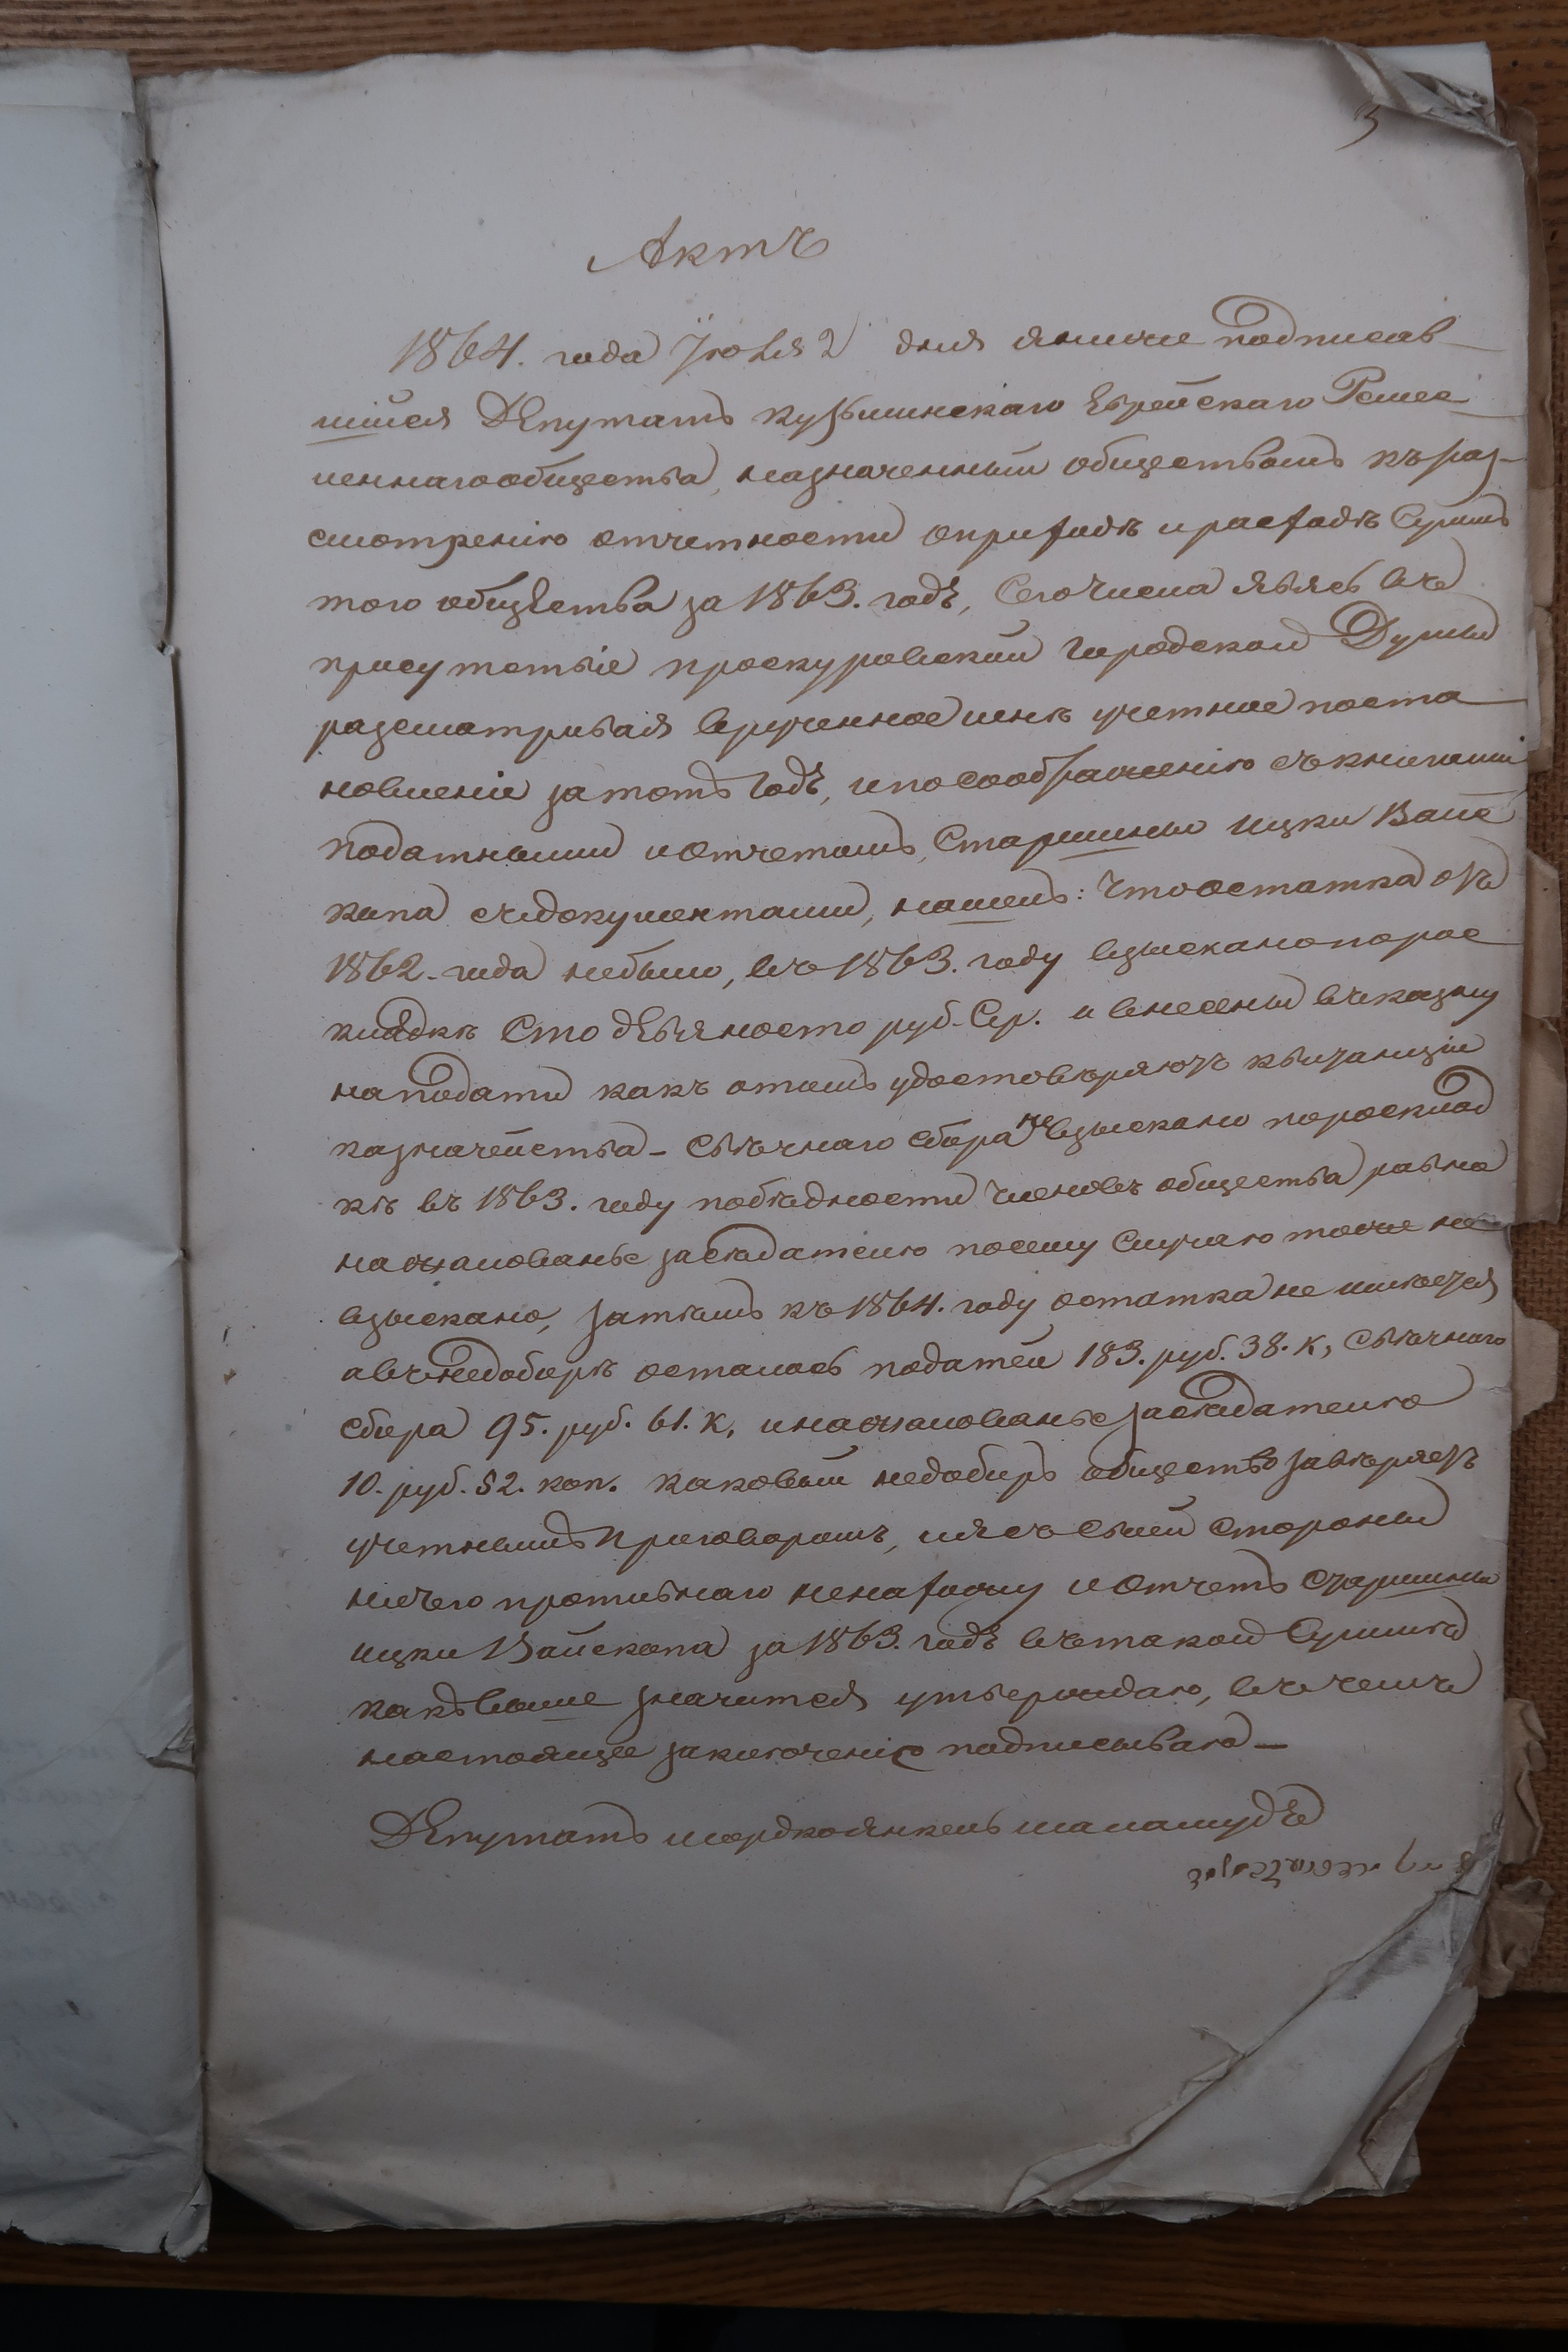 3
Актъ
1864. года Іюля 2 дня я ниже подписав
шійся Депутатъ кузьминскаго Еврейскаго Ремес
леннаго общества, назначенный обществомъ къ раз-
смотренію отчетности оприходѣ и расходѣ Суммъ
того общества за 1863. годъ, Сего числа явясь въ
присутствіе проскуровской городской Думы
разсматривая врученное мнѣ учетное поста
новленіе за тотъ годъ, и по соображенію съ книгами
податными и отчетомъ, Старшины ицки Вайс
копа съ документами, нашелъ: Что остатка отъ
1862. года небыло, въ 1863. году взыскано порас
кладкѣ Сто девяносто руб. Сер. и внесены въ казну
на подати какъ отомъ удостовѣряютъ квитанціи
казначейства – свѣчнаго сбора не взыскано пораскład
кѣ въ 1863. году побѣдности членовъ общества равно
на жалованье засѣдателю посему Случаю тоже не
взыскано, затѣмъ къ 1864. году остатка не имѣется
а въ недоборѣ осталось податей 183. руб. 38. к, свѣчнаго
сбора 95. руб. 61. к, и на жалованье засѣдателю
10. руб. 52. коп. каковый недоборъ общество завѣряетъ
учетнымъ приговоромъ, и я съ своей стороны
ничего противнаго ненахожу и отчетъ старшины
ицки Вайскопа за 1863. годъ въ такой Суммѣ
какъ выше значится утверждаю, въ чемъ
настоящее заключеніе подписываю –
Депутатъ мордко янкель